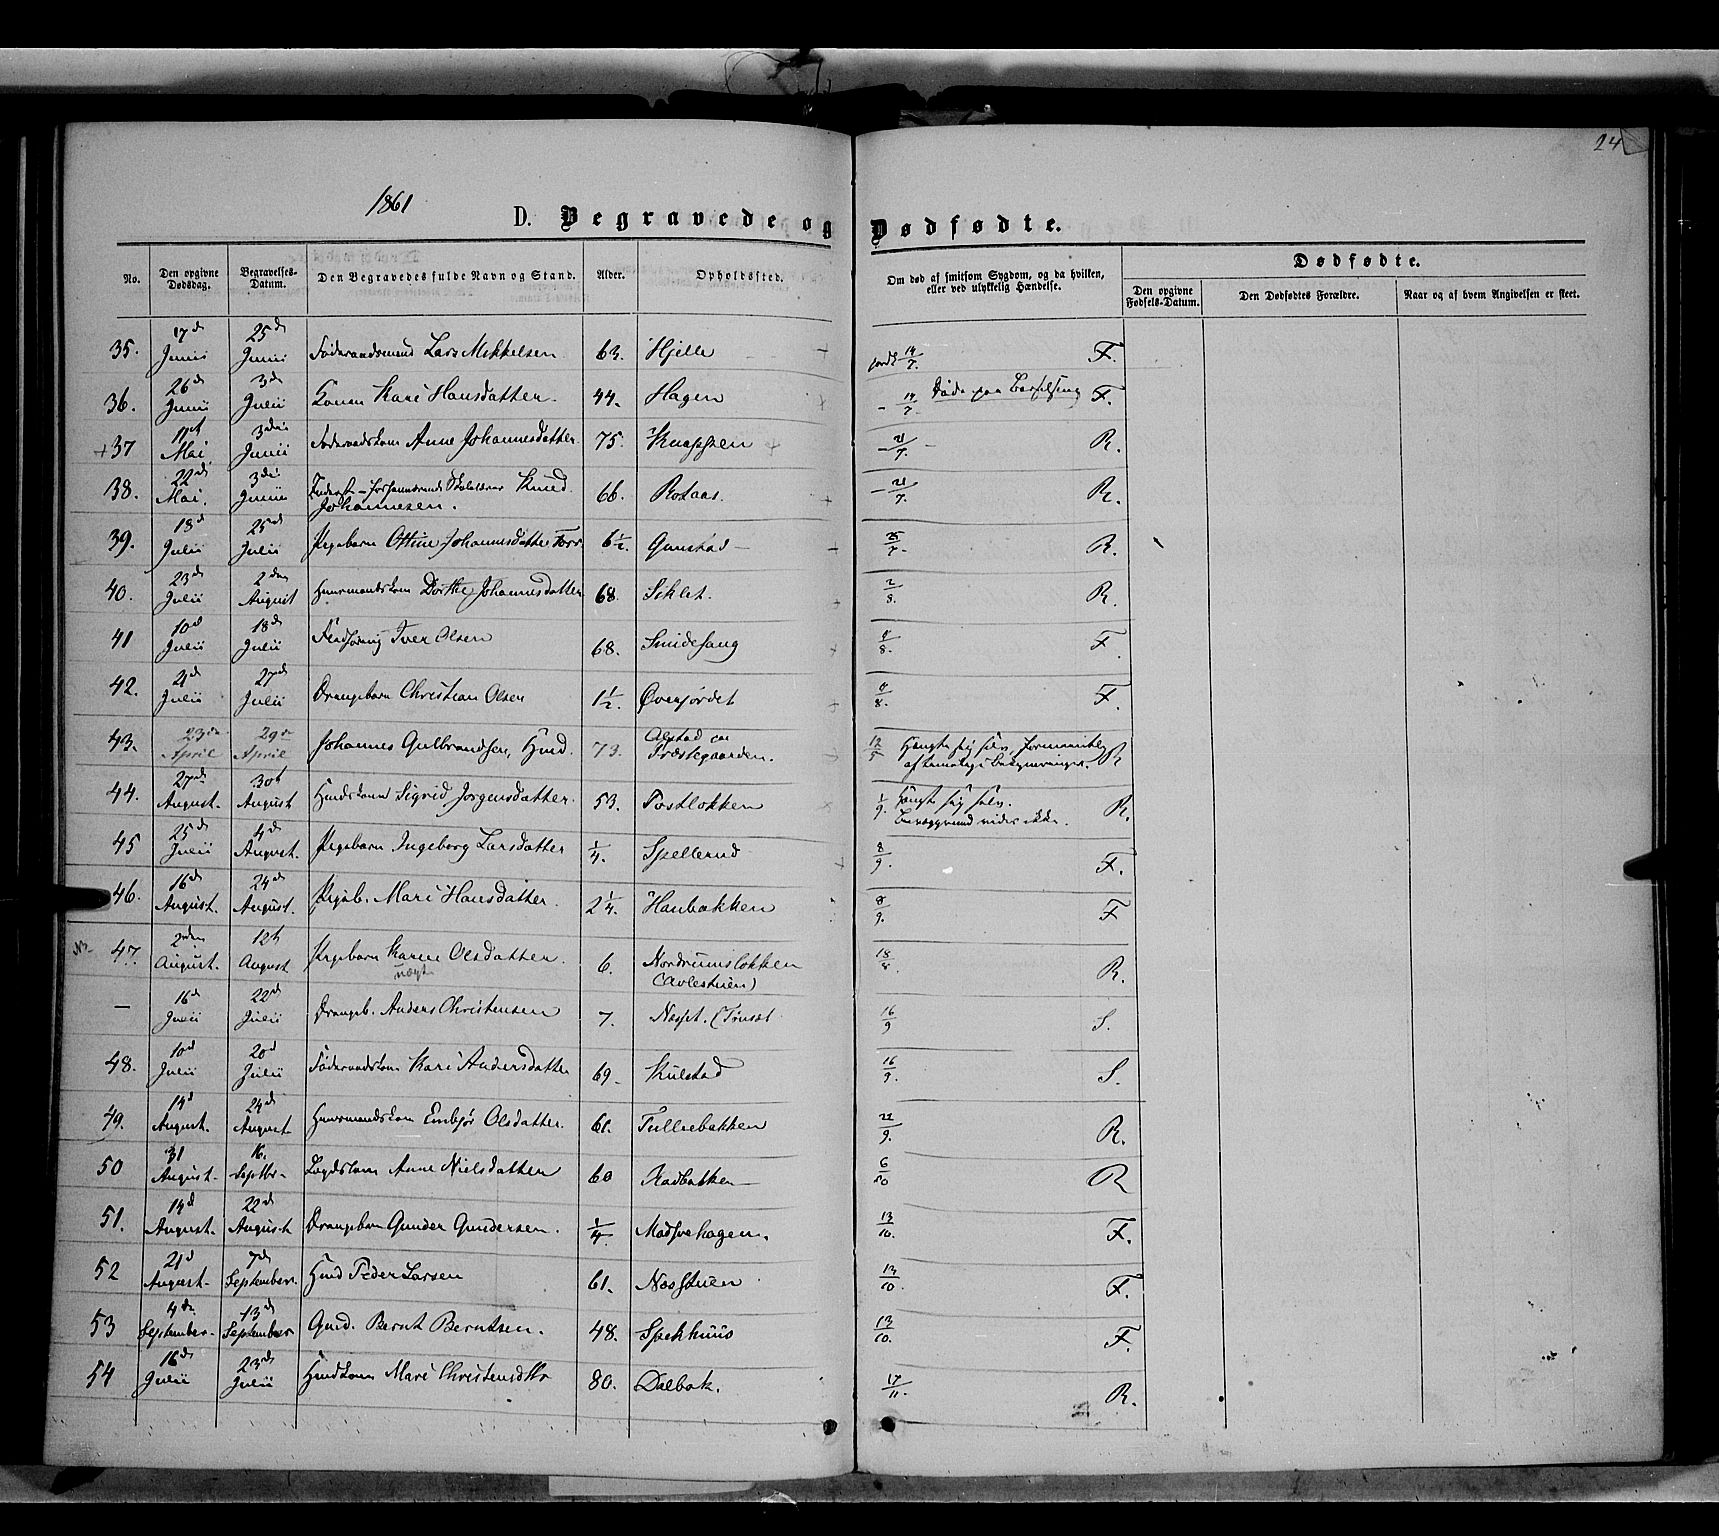 24
1861
D. Begravede og Dødfødte.
No. Den opgivne Dødsdag. Begravelses-Datum. Den Begravedes fulde Navn og Stand. Alder. Opholdssted. Om død af smitsom Sygdom, og da hvilken, eller ved ulykkelig Hændelse. Dødfødte.
Den opgivne Fødsels-Datum. Den Dødfødtes Forældre. Naar og af hvem Angivelsen er skeet.
35. 17d Junii 25d Junii Føderaadsmand Lars Mikkelsen 63. Hjelle 14/7. F.
36. 26d Junii 3d Julii Konen Kari Hansdatter. 44. Hagen - 14/7. Døde paa Barselseng F.
+37 11t Mai 3die Junii Føderaadskone Anne Johannesdatter 75. Knappen - 21/7. - R.
38. 22d Mai. 3die Junii Skolelærer Knud
Johannesen. 66. Rotaas. - 21/7. R.
39. 18d Julii 25d Julii Pigebarn Ottine Johannesdatter 6½. Gunstad - 25/7. R.
40. 23d Julii 2den August Huusmandskone Dorthe Johannesdatter 68. Siklet. 2/8. R.
41 10d Julii 18d Julii Iver Olsen 68. Smidesang /8. F.
42. 21d Julii 27d Julii Drengebarn Christian Olsen 1½. Øvenjordet /8. F.
43. 23de April 29de April Johannes Gulbrandsen, Hmd. 73. Alstad
Præstegaarden. 12/5 Hængte sig selv, formeentlig
af Bekymringer. R
44. 27de August 30t August Hmdskone Sigrid Jørgensdatter. 53. Tostlokken 1/9. Hængte sig selv.
Bevæggrund vides ikke. R.
45 25d Julii 4d August. Pigebarn Ingeborg Larsdatter ¼. Spellerud 8/9. F.
46. 16d August. 24d August. Pigeb. Mari Hansdatter. 2¼. Haubakken 8/9. F
NB- 47. 2den August. 12t August Pigebarn Karen Olsdatter. 6. Nordrumslokken
(Avlestuen) 18/8. R.
— 16d Junii 22d Julii Drengeb. Anders Christensen 7. Næsset. 16/9 S.
48. 10d Julii 20d Julii Føderaadskone Kari Andersdatter 69. Kulstad 16/9. S.
49. 14d August. 24d August Huusmandskone Embjør Olsdatter. 61. Tulliebakken 22/9. R.
50 31 August. 16. Septbr. Lægdskone Anne Nielsdatter 60 Kadbakken 6/10 R
51. 14d August. 22d August Drengebarn Gunder Gundersen. ¼. Madsvehagen. 13/10. F.
52 21d August- 7d September Hmd Peder Larsen 61. Næsstuen 13/10. F.
53 4de September- 13d September Gmd. Bernt Berntsen. 48. Spekhuus 13/10. F.
54 16de Julii 23de Julii Hmdkone Mari Christensdtr 80. Dælbak. 17/11. R.